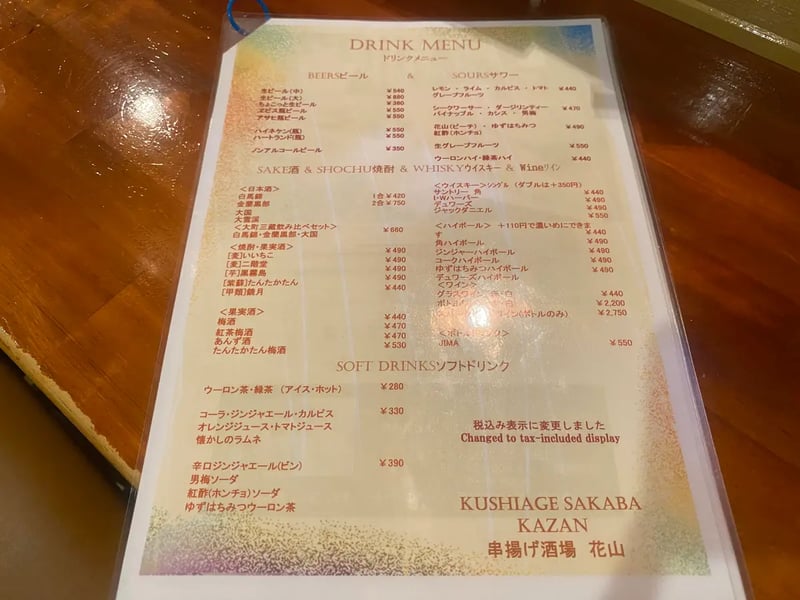 DRINK MENU
ドリンクメニュー
BEERSビール & SOURSサワー
生ビール(中) ¥540
生ビール(大) ¥880
ちょこっと生ビール ¥380
ヱビス瓶ビール ¥550
アサヒ瓶ビール ¥550
ハイネケン(瓶) ¥550
ハートランド(瓶) ¥550
ノンアルコールビール ¥350
レモン・ライム・カルピス・トマト ¥440
グレープフルーツ
シークワーサー・ダージリンティー ¥470
パイナップル・カシス・男梅
花山(ピーチ)・ゆずはちみつ ¥490
紅酢(ホンチョ)
生グレープフルーツ ¥550
ウーロンハイ・緑茶ハイ ¥440
SAKE酒 & SHOCHU焼酎 & WHISKYウイスキー & Wineワイン
<日本酒>
白馬錦 1合¥420
金蘭黒部 2合¥750
大国
大雪渓
<大町三蔵飲み比べセット> ¥660
白馬錦・金蘭黒部・大国
<焼酎・果実酒>
[麦]いいちこ ¥490
[麦]二階堂 ¥490
[芋]黒霧島 ¥490
[紫蘇]たんたかたん ¥490
[甲類]鏡月 ¥440
<果実酒>
梅酒 ¥440
紅茶梅酒 ¥470
あんず酒 ¥470
たんたかたん梅酒 ¥530
<ウイスキー>シングル (ダブルは+350円)
サントリー 角 ¥440
I・Wハーパー ¥490
デュワーズ ¥490
ジャックダニエル ¥550
<ハイボール> +110円で濃いめにできま
す ¥440
角ハイボール ¥490
ジンジャーハイボール ¥490
コークハイボール ¥490
ゆずはちみつハイボール ¥490
デュワーズハイボール
<ワイン>
グラスワイン ・白 ¥440
ボトル ¥2,200
イン(ボトルのみ) ¥2,750
<ボト ク>
JIMA ¥550
SOFT DRINKSソフトドリンク
ウーロン茶・緑茶 (アイス・ホット) ¥280
コーラ・ジンジャエール・カルピス ¥330
オレンジジュース・トマトジュース
懐かしのラムネ
辛口ジンジャエール(ビン) ¥390
男梅ソーダ
紅酢(ホンチョ)ソーダ
ゆずはちみつウーロン茶
税込み表示に変更しました
Changed to tax-included display
KUSHIAGE SAKABA
KAZAN
串揚げ酒場 花山